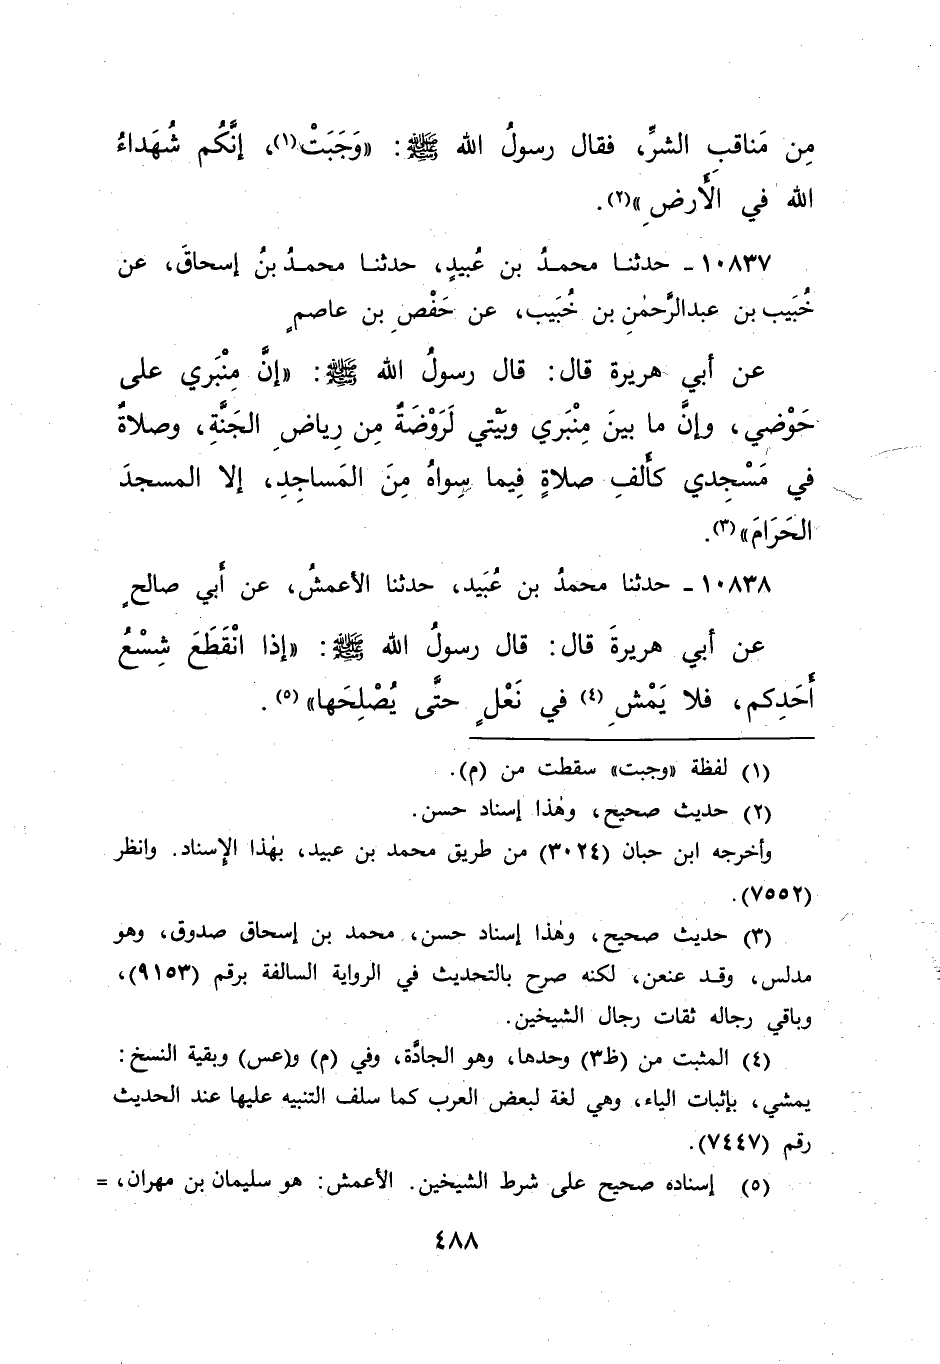 مِن مَناقبِ الشرِّ، فقال رسولُ الله ﷺ: «وَجَبَتْ(١)، إنَّكُم شُهَداءُ
الله في الأَرضِ»(٢).
١٠٨٣٧ ـ حدثنا محمدُ بن عُبيدٍ، حدثنا محمدُ بنُ إسحاقَ، عن
خُبَيب بن عبدالرَّحمٰنِ بن خُبَيب، عن حَفْصِ بن عاصمٍ
عن أبي هريرة قال: قال رسولُ الله ﷺ: «إنَّ مِنْبَري على
حَوْضي، وإنَّ ما بينَ مِنْبَري وبَيْتي لَرَوْضَةٌ مِن رِياضِ الجَنَّةِ، وصلاةٌ
في مَسْجِدي كأَلفِ صلاةٍ فِيما سِواهُ مِنَ المَساجِدِ، إلا المسجدَ
الحَرَامَ»(٣).
١٠٨٣٨ ـ حدثنا محمدُ بن عُبَيد، حدثنا الأعمشُ، عن أَبي صالحٍ
عن أبي هريرةَ قال: قال رسولُ الله ﷺ: «إذا انْقَطَعَ شِسْعُ
أَحَدِكم، فلا يَمْشِ(٤) في نَعْلٍ حتَّى يُصْلِحَها»(٥).
(١) لفظة «وجبت» سقطت من (م).
(٢) حديث صحيح، وهٰذا إسناد حسن.
وأخرجه ابن حبان (٣٠٢٤) من طريق محمد بن عبيد، بهٰذا الإسناد. وانظر
(٧٥٥٢).
(٣) حديث صحيح، وهٰذا إسناد حسن، محمد بن إسحاق صدوق، وهو
مدلس، وقد عنعن، لكنه صرح بالتحديث في الرواية السالفة برقم (٩١٥٣)،
وباقي رجاله ثقات رجال الشيخين.
(٤) المثبت من (ظ٣) وحدها، وهو الجادَّة، وفي (م) و(عس) وبقية النسخ:
يمشي، بإثبات الياء، وهي لغة لبعض العرب كما سلف التنبيه عليها عند الحديث
رقم (٧٤٤٧).
(٥) إسناده صحيح على شرط الشيخين. الأعمش: هو سليمان بن مهران، =
٤٨٨